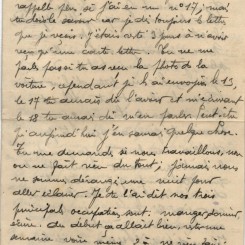 rappelle plus si j'ai eu un n° 17, mais
car je dis toujours la lettre
que je reçois. J'étais resté 3 jours à n'avoir
reçu qu'une courte lettre. Tu ne me
parles pas si tu as reçu la photo de la
voiture, cependant je l'ai envoyée le 13,
le 17 tu aurais dû l'avoir et m'écrivant
le 18 tu aurais dû m'en parler. Peut-être
qu'aujourd'hui j'en saurai quelque chose.
Tu me demandes si nous travaillons, non
on ne fait rien du tout, jamais nous
ne sommes dérangés une nuit pour
aller éclairer. Je te l'ai dit nos trois
principales occupations sont : manger dormir
au début ça allait bien, une
semaine voire même 2, à ne rien faire